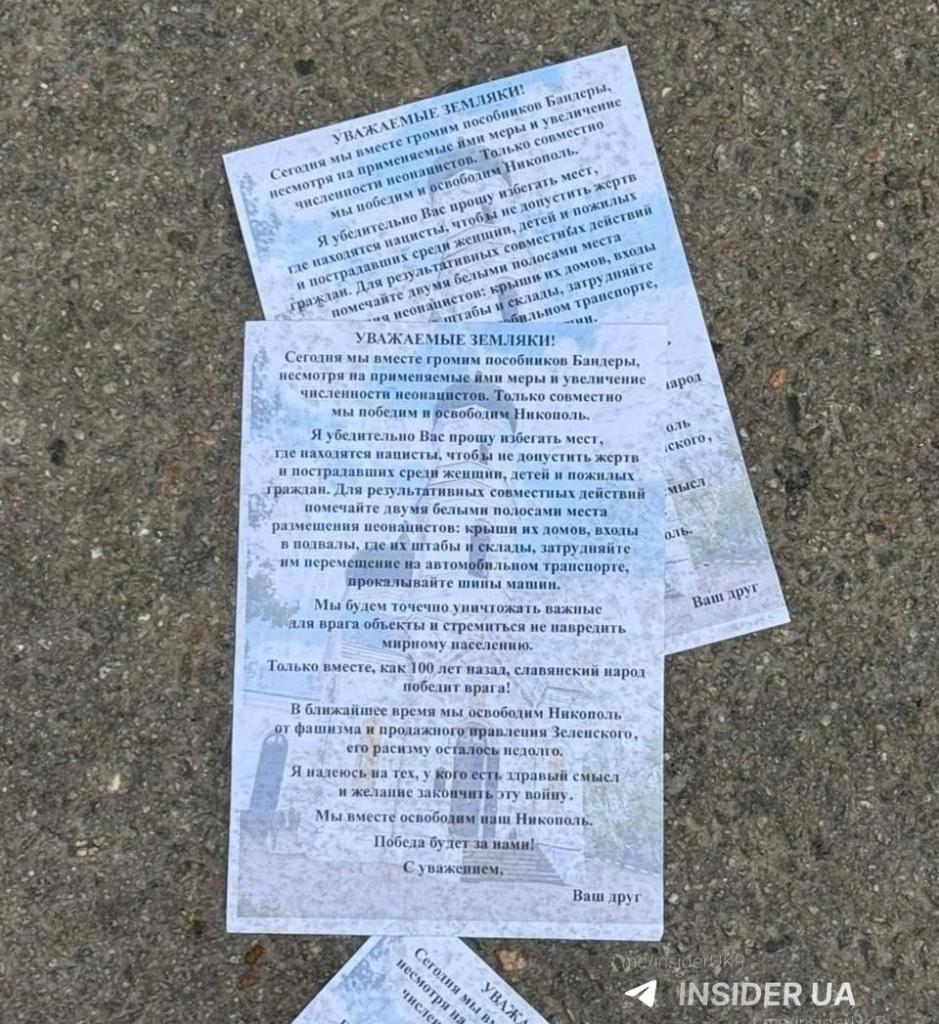 УВАЖАЕМЫЕ ЗЕМЛЯКИ!
Сегодня мы вместе громим пособников Бандеры,
несмотря на применяемые йми меры и увеличение
численности неонацистов. Только совместно
мы победим и освободим Никополь.
Я убедительно Вас прошу избегать мест,
где находятся нацисты, чтобы не допустить жертв
и пострадавших среди женщин, детей и пожилых
граждан. Для результативных совместных действий
помечайте двумя белыми полосами места
неонацистов: крыши их домов, входы
штабы и склады, затрудняйте
транспорте,
народ
мысл
Ваш друг
УВАЖАЕМЫЕ ЗЕМЛЯКИ!
Сегодня мы вместе громим пособников Бандеры,
несмотря на применяемые йми меры и увеличение
численности неонацистов. Только совместно
мы победим и освободим Никополь.
Я убедительно Вас прошу избегать мест,
где находятся нацисты, чтобы не допустить жертв
и пострадавших среди женщин, детей и пожилых
граждан. Для результативных совместных действий
помечайте двумя белыми полосами места
размещения неонацистов: крыши их домов, входы
в подвалы, где их штабы и склады, затрудняйте
им перемещение на автомобильном транспорте,
прокалывайте шины машин.
Мы будем точечно уничтожать важные
для врага объекты и стремиться не навредить
мирному населению.
Только вместе, как 100 лет назад, славянский народ
победит врага!
В ближайшее время мы освободим Никополь
от фашизма и продажного правления Зеленского,
его расизму осталось недолго.
Я надеюсь на тех, у кого есть здравый смысл
и желание закончить эту войну.
Мы вместе освободим наш Никополь.
Победа будет за нами!
С уважением,
Ваш друг
УВАЖА
Сегодня мы вм
несмотря на
INSIDER UA